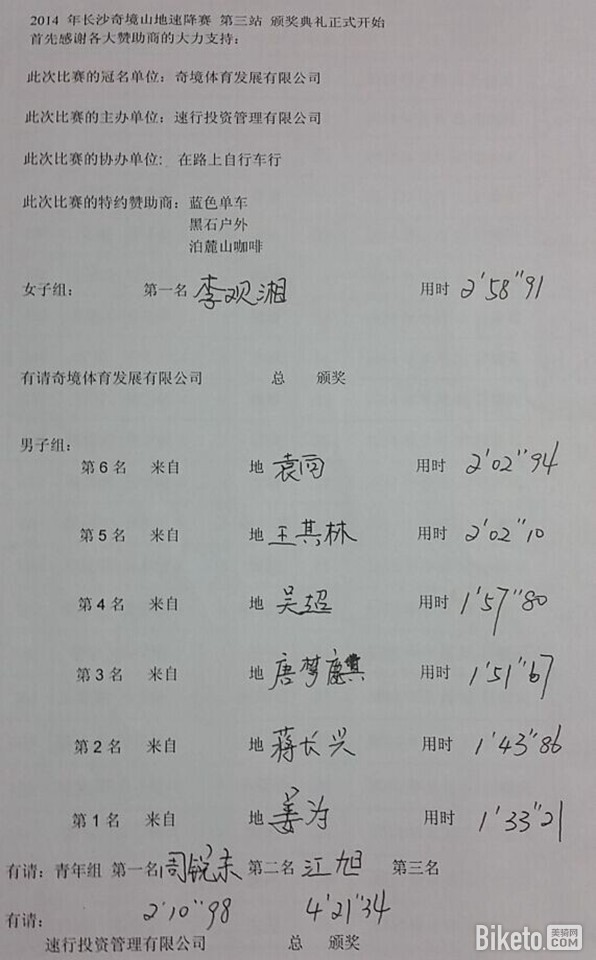 2014 年长沙奇境山地速降赛 第三站 颁奖典礼正式开始
首先感谢各大赞助商的大力支持：
此次比赛的冠名单位：奇境体育发展有限公司
此次比赛的主办单位：速行投资管理有限公司
此次比赛的协办单位： 在路上自行车行
此次比赛的特约赞助商：蓝色单车
黑石户外
泊麓山咖啡
女子组： 第一名 李观湘 用时 2'58"91
有请奇境体育发展有限公司 总 颁奖
男子组：
第 6 名 来自 地 袁 用时 2'02"94
第 5 名 来自 地 王其林 用时 2'02"10
第 4 名 来自 地 吴超 用时 1'57"80
第 3 名 来自 地 唐梦麒 用时 1'51"67
第 2 名 来自 地 蒋长兴 用时 1'43"86
第 1 名 来自 地 姜为 用时 1'33"21
有请：青年组 第一名 周锐 第二名 江旭 第三名
有请： 2'10"98 4'21"34
速行投资管理有限公司 总 颁奖
Biketo.com 美骑网